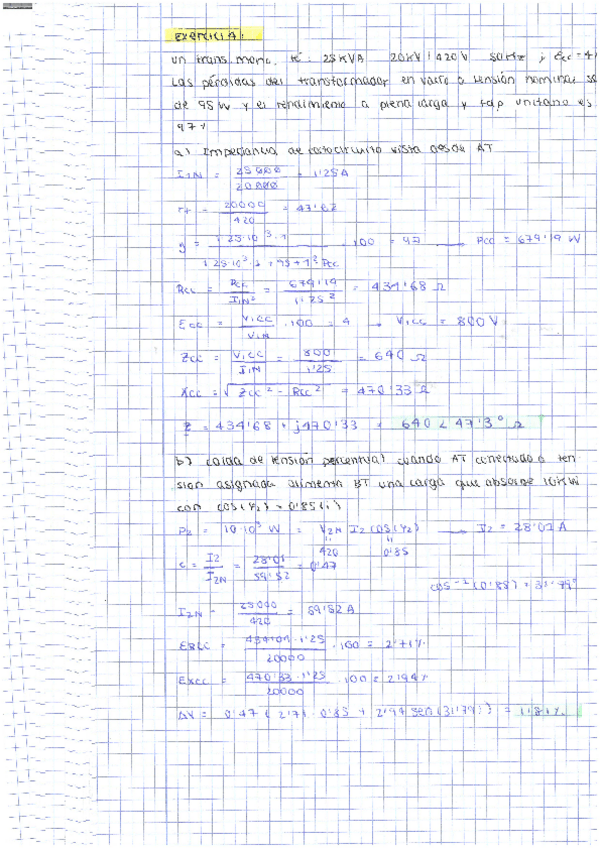 Exercici 4:
un trans. mono. 25 KVA 20KV/420V 50Hz ; Ecc = 4
Las pérdidas del transformador en vacío a tensión nominal
de 95 W y el rendimiento a plena carga y fdp unitario es
97%
a) Impedancia de cortocircuito vista desde AT
I1N = 25000 / 20000 = 1'25A
rt = 20000 / 420 = 47'62
η = 1·25·10³·1 / 1·25·10³·1 + 95 + 1²·Pcc · 100 = 97 → Pcc = 679'19 W
Rcc = Pcc / I1N² = 679'19 / 1'25² = 434'68 Ω
Ecc = V1cc / V1N · 100 = 4 → V1cc = 800V
Zcc = V1cc / I1N = 800 / 1'25 = 640 Ω
Xcc = √Zcc² - Rcc² = 470'33 Ω
Z = 434'68 + j470'33 = 640 ∠ 47'3° Ω
b) caída de tensión porcentual cuando AT conectado a ten
sion asignada alimenta BT una carga que absorbe 10KW
con cos(φ2) = 0'85(i)
P2 = 10·10³ W = V2N I2 cos(φ2) → I2 = 28'01 A
420 0'85
c = I2 / I2N = 28'01 / 59'52 = 0'47
cos⁻¹(0'85) = 31'79°
I2N = 25000 / 420 = 59'52A
· 1'25 / 20000 · 100 = 2'71%
Excc = 470'33·1'25 / 20000 · 100 = 2'94%
ΔV = 0'47 (2'71 · 0'85 + 2'94 sen(31'79)) = 1'81%